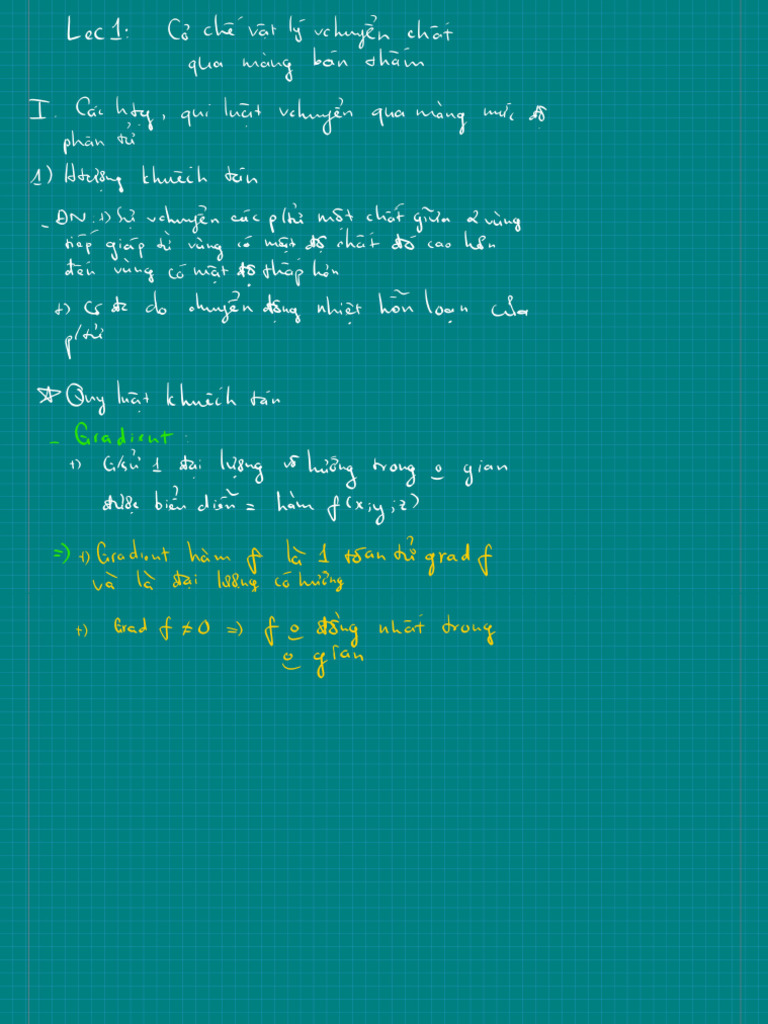 Lec 1: Cơ chế vật lý vchuyển chất
qua màng bán thấm
I. Các htg, qui luật vchuyển qua màng mức độ
phân tử
1) Htượng khuếch tán
- ĐN: +) Sự vchuyển các p/tử một chất giữa 2 vùng
tiếp giáp từ vùng có mật độ chất đó cao hơn
đến vùng có mật độ thấp hơn
+) do chuyển động nhiệt hỗn loạn của
p/tử
☆ Quy luật khuếch tán
- Gradient:
+) G/sử 1 đại lượng vô hướng trong o gian
được biểu diễn = hàm f(x;y;z)
=) +) Gradient hàm f là 1 toán tử grad f
và là đại lượng có hướng
+) Grad f ≠ 0 => f o đồng nhất trong
o gian